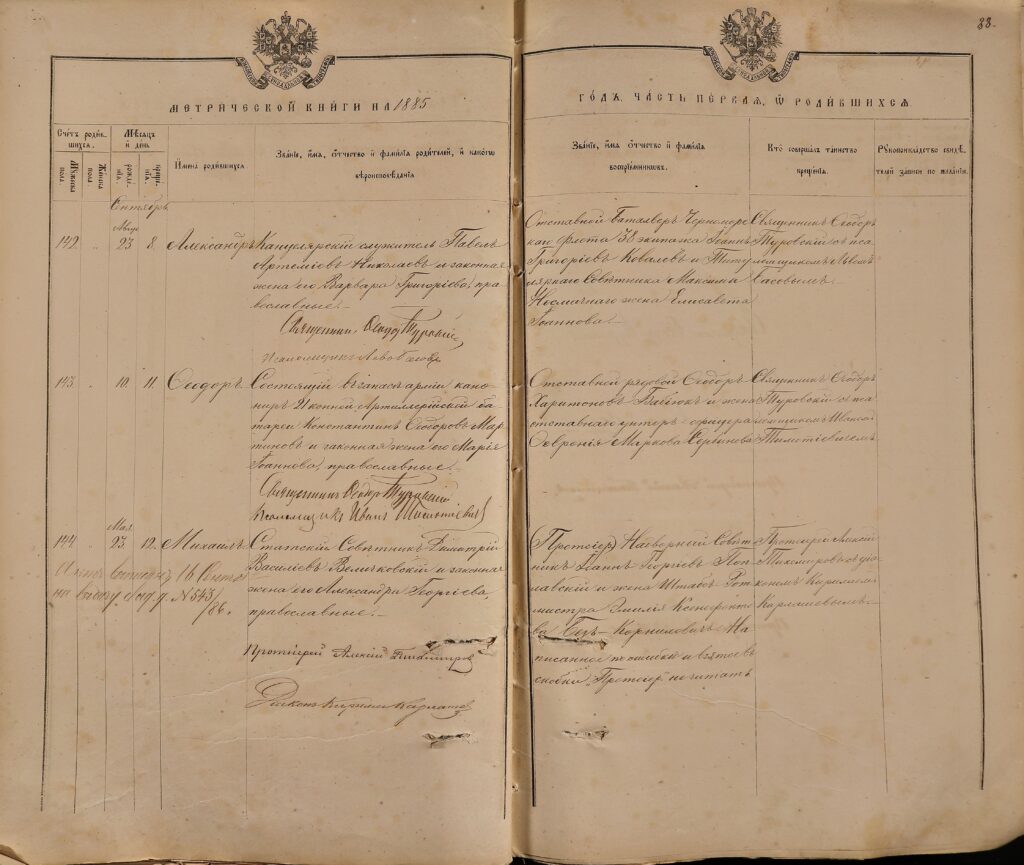 88.
МЕТРИЧЕСКОЙ КНИГИ НА 1885
ГОДЪ, ЧАСТЬ ПЕРВАЯ, Ѡ РОДИВШИХСЯ.
Счетъ родив-
шихся.
Мужеска
пола
Женска
пола
Мѣсяцъ
и день
рожде-
нія.
креще-
нія.
Имена родившихся.
Званіе, имя, отчество и фамилія родителей, и какого
вѣроисповѣданія
Званіе, имя, отчество и фамилія
воспріемниковъ.
Кто совершалъ таинство
крещенія.
Рукоприкладство свидѣ-
телей записи по желанію.
Сентябрь
Авгу.
142 " 23 8. Александръ
Канцелярскій служитель Павелъ
Артеміевъ Николаевъ и законная
жена его Варвара Григоріева, пра-
вославные.
Священникъ Ѳеодоръ Турскій
Псаломщикъ Левъ
Отставной баталеръ Черномор-
скаго флота 38 экипажа Іоаннъ
Григоріевъ Ковалевъ и Титу-
лярнаго Совѣтника Максима
жена Елисавета
Іоаннова.
Священникъ Ѳеодоръ
Туровскій съ пса-
ломщикомъ Львомъ
143 " 10 11. Ѳеодоръ
Состоящій въ запасѣ арміи кано-
ниръ конной Артиллерійской ба-
тареи Константинъ Ѳеодоровъ Мар-
тиновъ и законная жена его Марія
Іоаннова, православные.
Священникъ Ѳеодоръ
Псаломщикъ Иванъ
Отставной рядовой Ѳеодоръ
Харитоновъ и жена
отставнаго унтеръ-офицера
Ѳевронія Маркова
Священникъ Ѳеодоръ
Туровскій съ пса-
ломщикомъ Иваномъ
144 "
Мая
23. 12. Михаилъ
16 Сентяб
на выдачу N 543/
86.
Статскій Совѣтникъ Димитрій
Василіевъ Величковскій и законная
жена его Александра Георгіева,
православные.
Протоіерей Алексій
Діаконъ Кириллъ
Протоіер. Надворный Совѣт-
никъ Іоаннъ Георгіевъ Поп
и жена Штабъ-Рот-
мистра Эмилія Ксенофонто-
ва Бецъ-Корниловичъ На-
писанное по ошибкѣ и взятое въ
скобки "Протоіер" не читать
Протоіерей Алексій
съ діа-
кономъ Кирилломъ